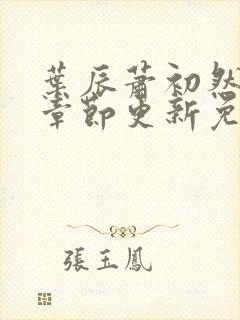 葉辰蕭初然
章節更新免
張玉鳳